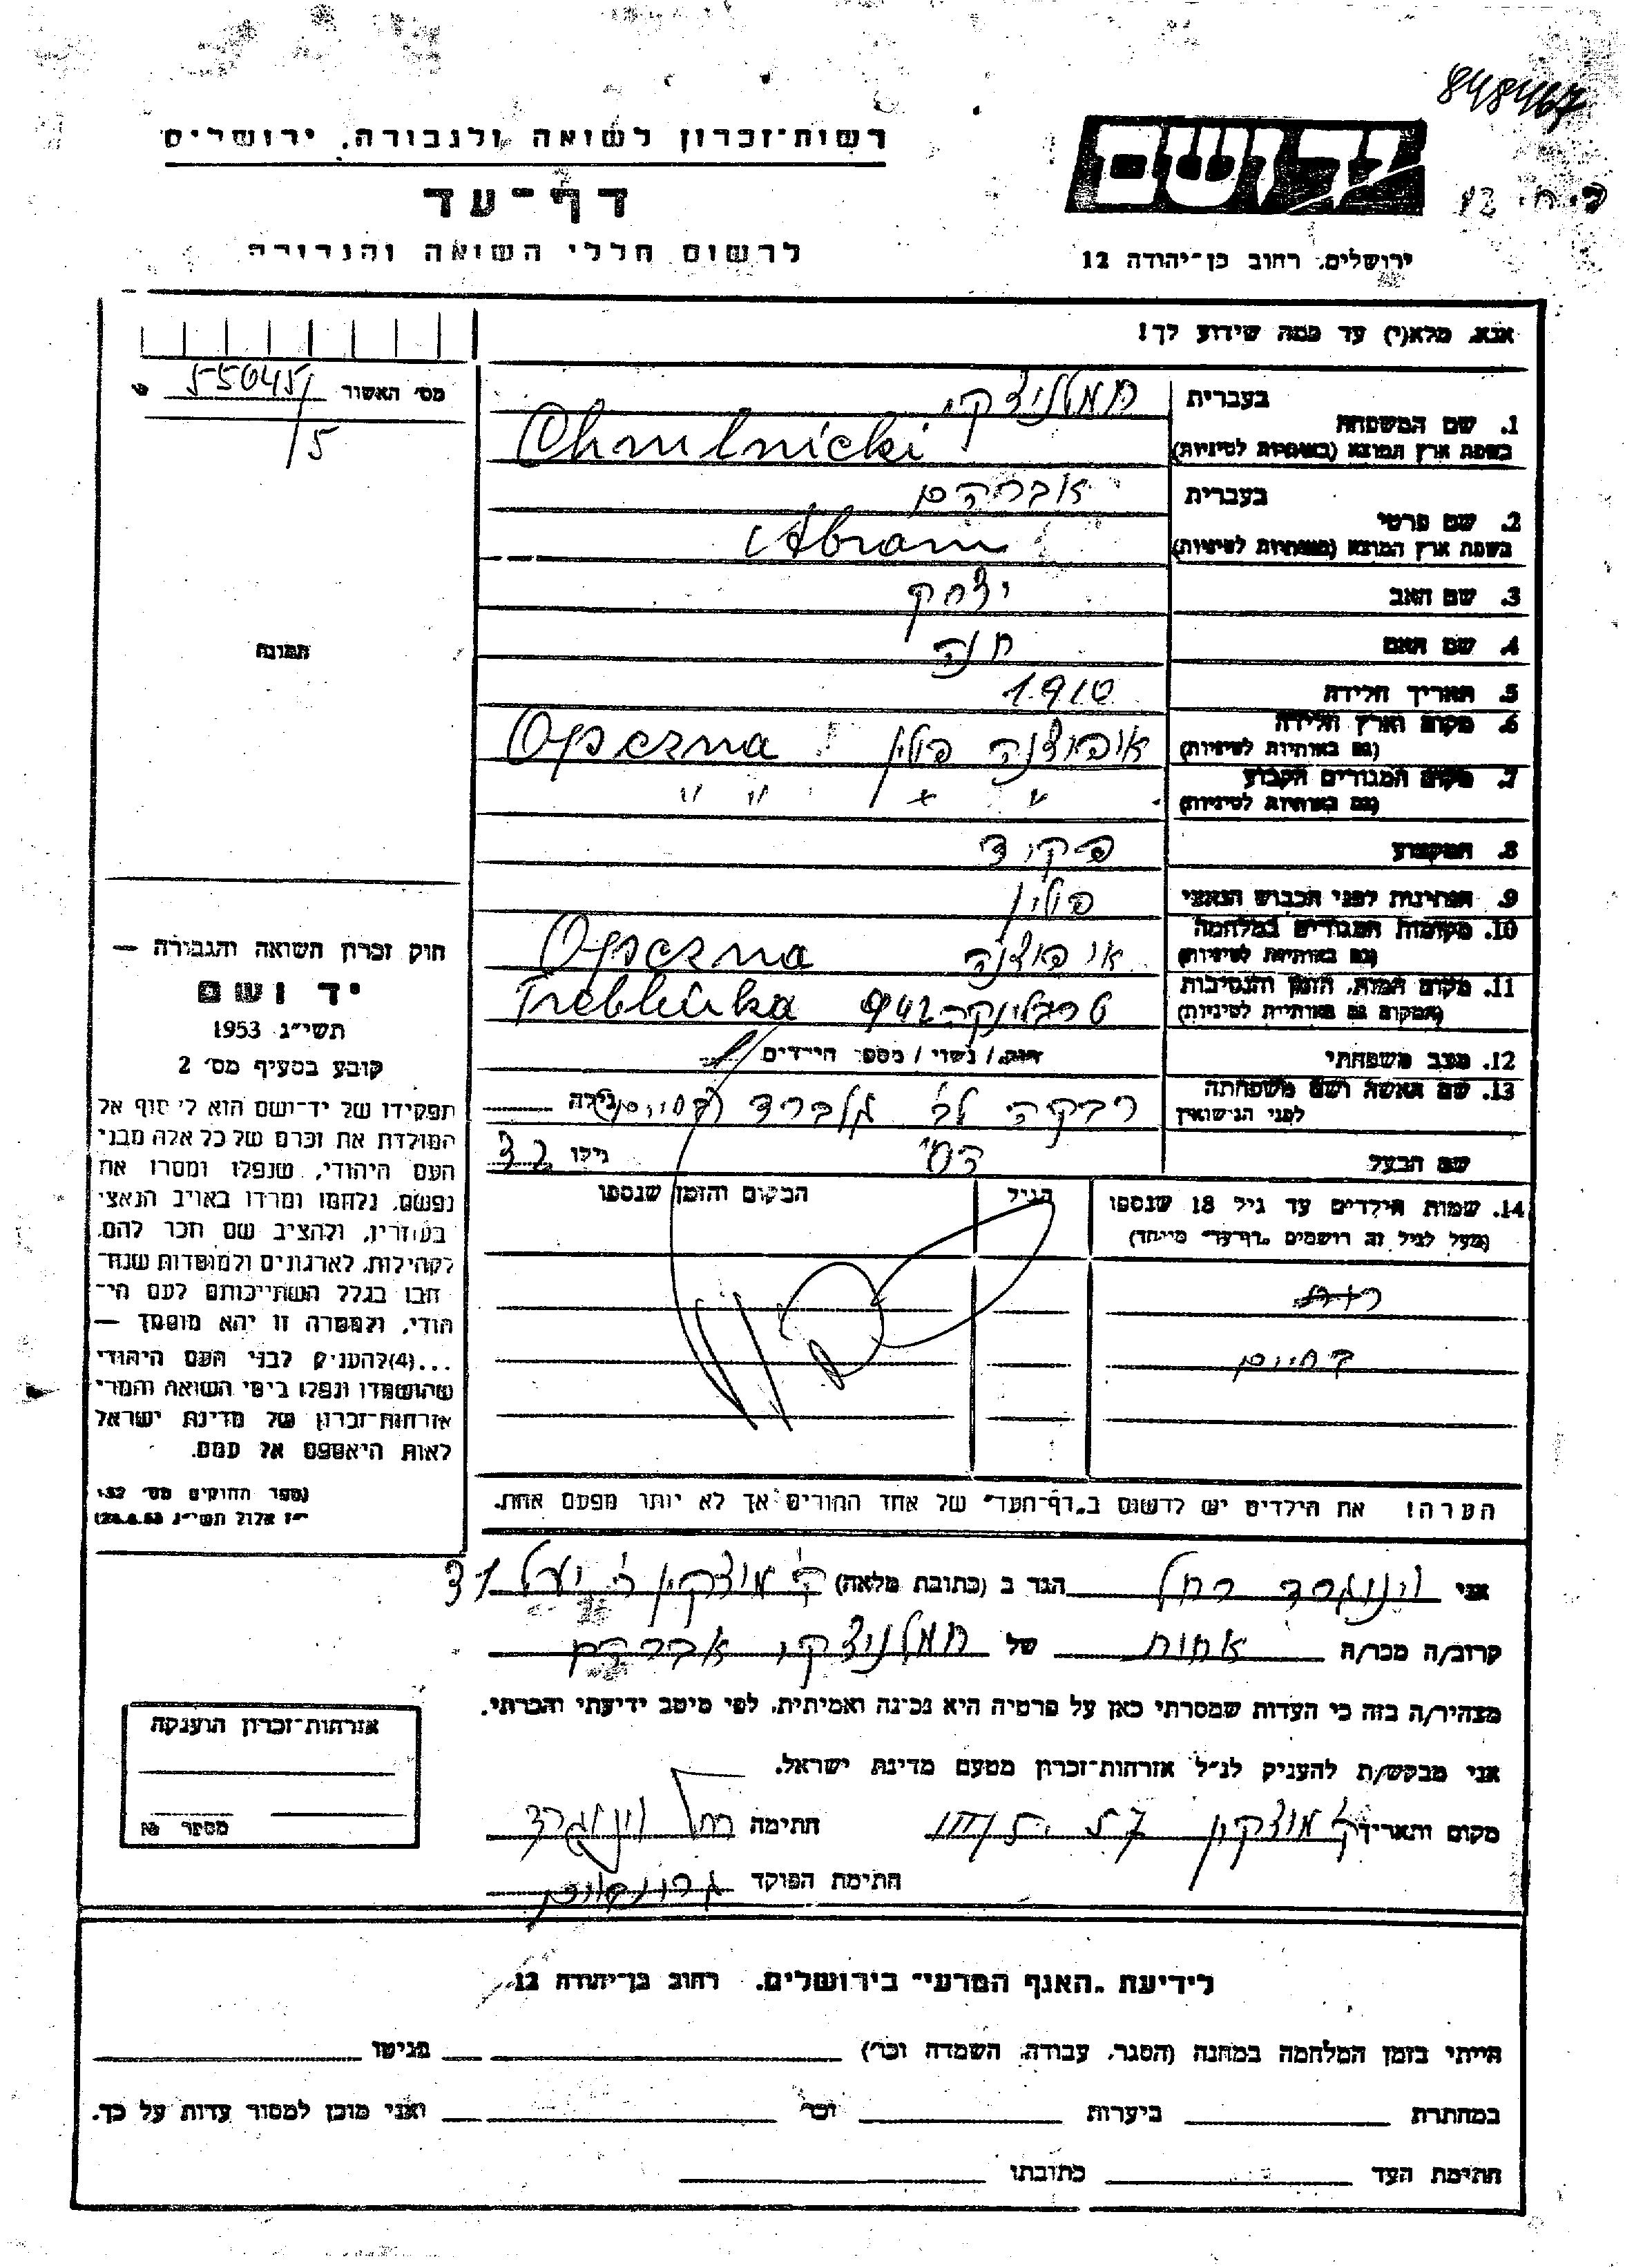 848467
רשות־זכרון לשואה ולגבורה, ירושלים
יד ושם
דף־עד
לרשום חללי השואה והגבורה
ירושלים, רחוב בן־יהודה 12
אנא, מלא(י) עד כמה שידוע לך!
מס׳ האשור 55045/
/5
1. שם המשפחה
בעברית חמלניצקי
בשפת ארץ המוצא (באותיות לטיניות) Chmelnicki
2. שם פרטי
בעברית אברהם
בשפת ארץ המוצא (באותיות לטיניות) Abram
3. שם האב יצחק
4. שם האם חנה
תמונה
5. תאריך הלידה 1910
6. מקום וארץ הלידה
(גם באותיות לטיניות) אופוצנה פולין Opoczna
7. מקום המגורים הקבוע
(גם באותיות לטיניות) " " " "
8. המקצוע פקיד
9. הנתינות לפני הכבוש הנאצי פולין
10. מקומות המגורים במלחמה
(גם באותיות לטיניות) אופוצנה Opoczna
11. מקום המות, הזמן והנסיבות
(המקום גם באותיות לטיניות) טרבלינקה 942 Treblinka
12. מצב משפחתי רווק / נשוי / מספר הילדים
13. שם האשה ושם משפחתה
לפני הנישואין רבקה לב׳ גילה
שם הבעל גילו 32
14. שמות הילדים עד גיל 18 שנספו
(מעל לגיל זה רושמים „דף־עד״ מיוחד)
הגיל
המקום והזמן שנספו
בחיים
חוק זכרון השואה והגבורה —
יד ושם
תשי״ג 1953
קובע בסעיף מס׳ 2
תפקידו של יד־ושם הוא לאסוף אל
המולדת את זכרם של כל אלה מבני
העם היהודי, שנפלו ומסרו את
נפשם, נלחמו ומרדו באויב הנאצי
בעוזריו, ולהציב שם וזכר להם,
לקהילות, לארגונים ולמוסדות שנח־
רבו בגלל השתייכותם לעם הי־
הודי, ולמטרה זו יהא מוסמך —
...(4) להעניק לבני העם היהודי
שהושמדו ונפלו בימי השואה והמרי
אזרחות־זכרון של מדינת ישראל
לאות היאספם אל עמם.
(ספר החוקים מס׳ 132,
י״ז אלול תשי״ג 28.8.53)
הערה! את הילדים יש לרשום ב„דף־העד״ של אחד ההורים אך לא יותר מפעם אחת.
אני וינגרד רחל הגר ב (כתובת מלאה) ק׳ מוצקין ר׳ יעל 31
קרוב/ה מכר/ה אחות של חמלניצקי אברהם
מצהיר/ה בזה כי העדות שמסרתי כאן על פרטיה היא נכונה ואמיתית, לפי מיטב ידיעתי והכרתי.
אני מבקש/ת להעניק לנ״ל אזרחות־זכרון מטעם מדינת ישראל.
מקום ותאריך ק׳ מוצקין חתימה רחל וינגרד
חתימת הפוקד
אזרחות־זכרון הוענקה
מספר №
לידיעת „האגף המדעי״ בירושלים, רחוב בן־יהודה 12
הייתי בזמן המלחמה במחנה (הסגר, עבודה, השמדה וכו׳) בגיטו
במחתרת ביערות וכו׳ ואני מוכן למסור עדות על כך.
חתימת העד כתובתו